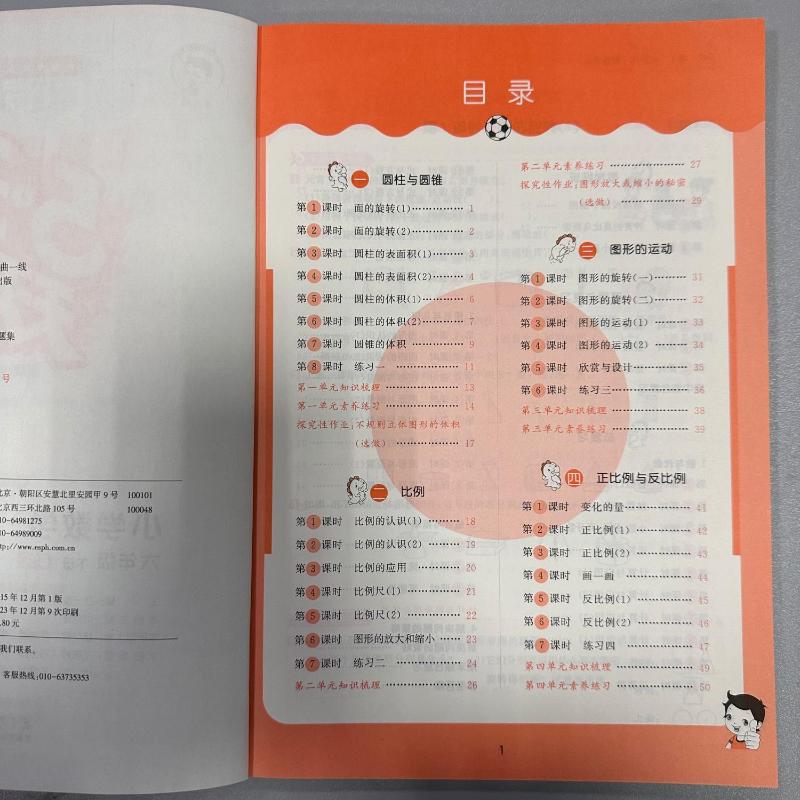 曲一线
出版
题集
号
北京·朝阳区安慧北里安园甲9号 100101
北京西三环北路105号 100048
010-64981275
010-64989009
http://www.esph.com.cn
15年12月第1版
23年12月第9次印刷
.80元
我们联系。
客服热线:010-63735353
目录
一 圆柱与圆锥
第1课时 面的旋转(1)…………… 1
第2课时 面的旋转(2)…………… 2
第3课时 圆柱的表面积(1)……… 3
第4课时 圆柱的表面积(2)……… 4
第5课时 圆柱的体积(1)………… 6
第6课时 圆柱的体积(2)………… 7
第7课时 圆锥的体积 …………… 9
第8课时 练习一 ………………… 11
第一单元知识梳理 ……………… 13
第一单元素养练习 ……………… 14
探究性作业:不规则立体图形的体积
(选做) ……………… 17
二 比例
第1课时 比例的认识(1)………… 18
第2课时 比例的认识(2)………… 19
第3课时 比例的应用 …………… 20
第4课时 比例尺(1)……………… 21
第5课时 比例尺(2)……………… 22
第6课时 图形的放大和缩小 …… 23
第7课时 练习二 ………………… 24
第二单元知识梳理 ……………… 26
第二单元素养练习 ……………… 27
探究性作业:图形放大或缩小的秘密
(选做) ……………… 29
三 图形的运动
第1课时 图形的旋转(一)……… 31
第2课时 图形的旋转(二)……… 32
第3课时 图形的运动(1) ……… 33
第4课时 图形的运动(2) ……… 34
第5课时 欣赏与设计…………… 35
第6课时 练习三………………… 36
第三单元知识梳理 ……………… 38
第三单元素养练习 ……………… 39
四 正比例与反比例
第1课时 变化的量……………… 41
第2课时 正比例(1) …………… 42
第3课时 正比例(2) …………… 43
第4课时 画一画 ………………… 44
第5课时 反比例(1) …………… 45
第6课时 反比例(2) …………… 46
第7课时 练习四 ………………… 47
第四单元知识梳理 ……………… 49
第四单元素养练习 ……………… 50
1